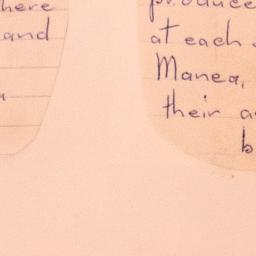 here
and
produce
at each
Manea,
their